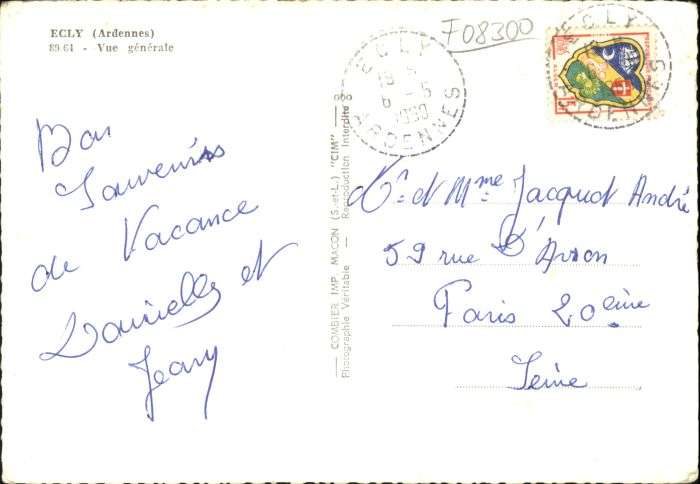 ECLY (Ardennes)
89 64 - Vue générale
F08300
ECLY
18 H
6 - 5
1960
ARDENNES
ECLY
ARDENNES
Bon
Souvenirs
de Vacance
Danielle et
Jeany
COMBIER IMP. MACON (S.-et-L.) "CIM"
Photographie Véritable — Reproduction Interdite
Mr et Mme Jacquot André
59 rue D'Avron
Paris 20eme
Seine